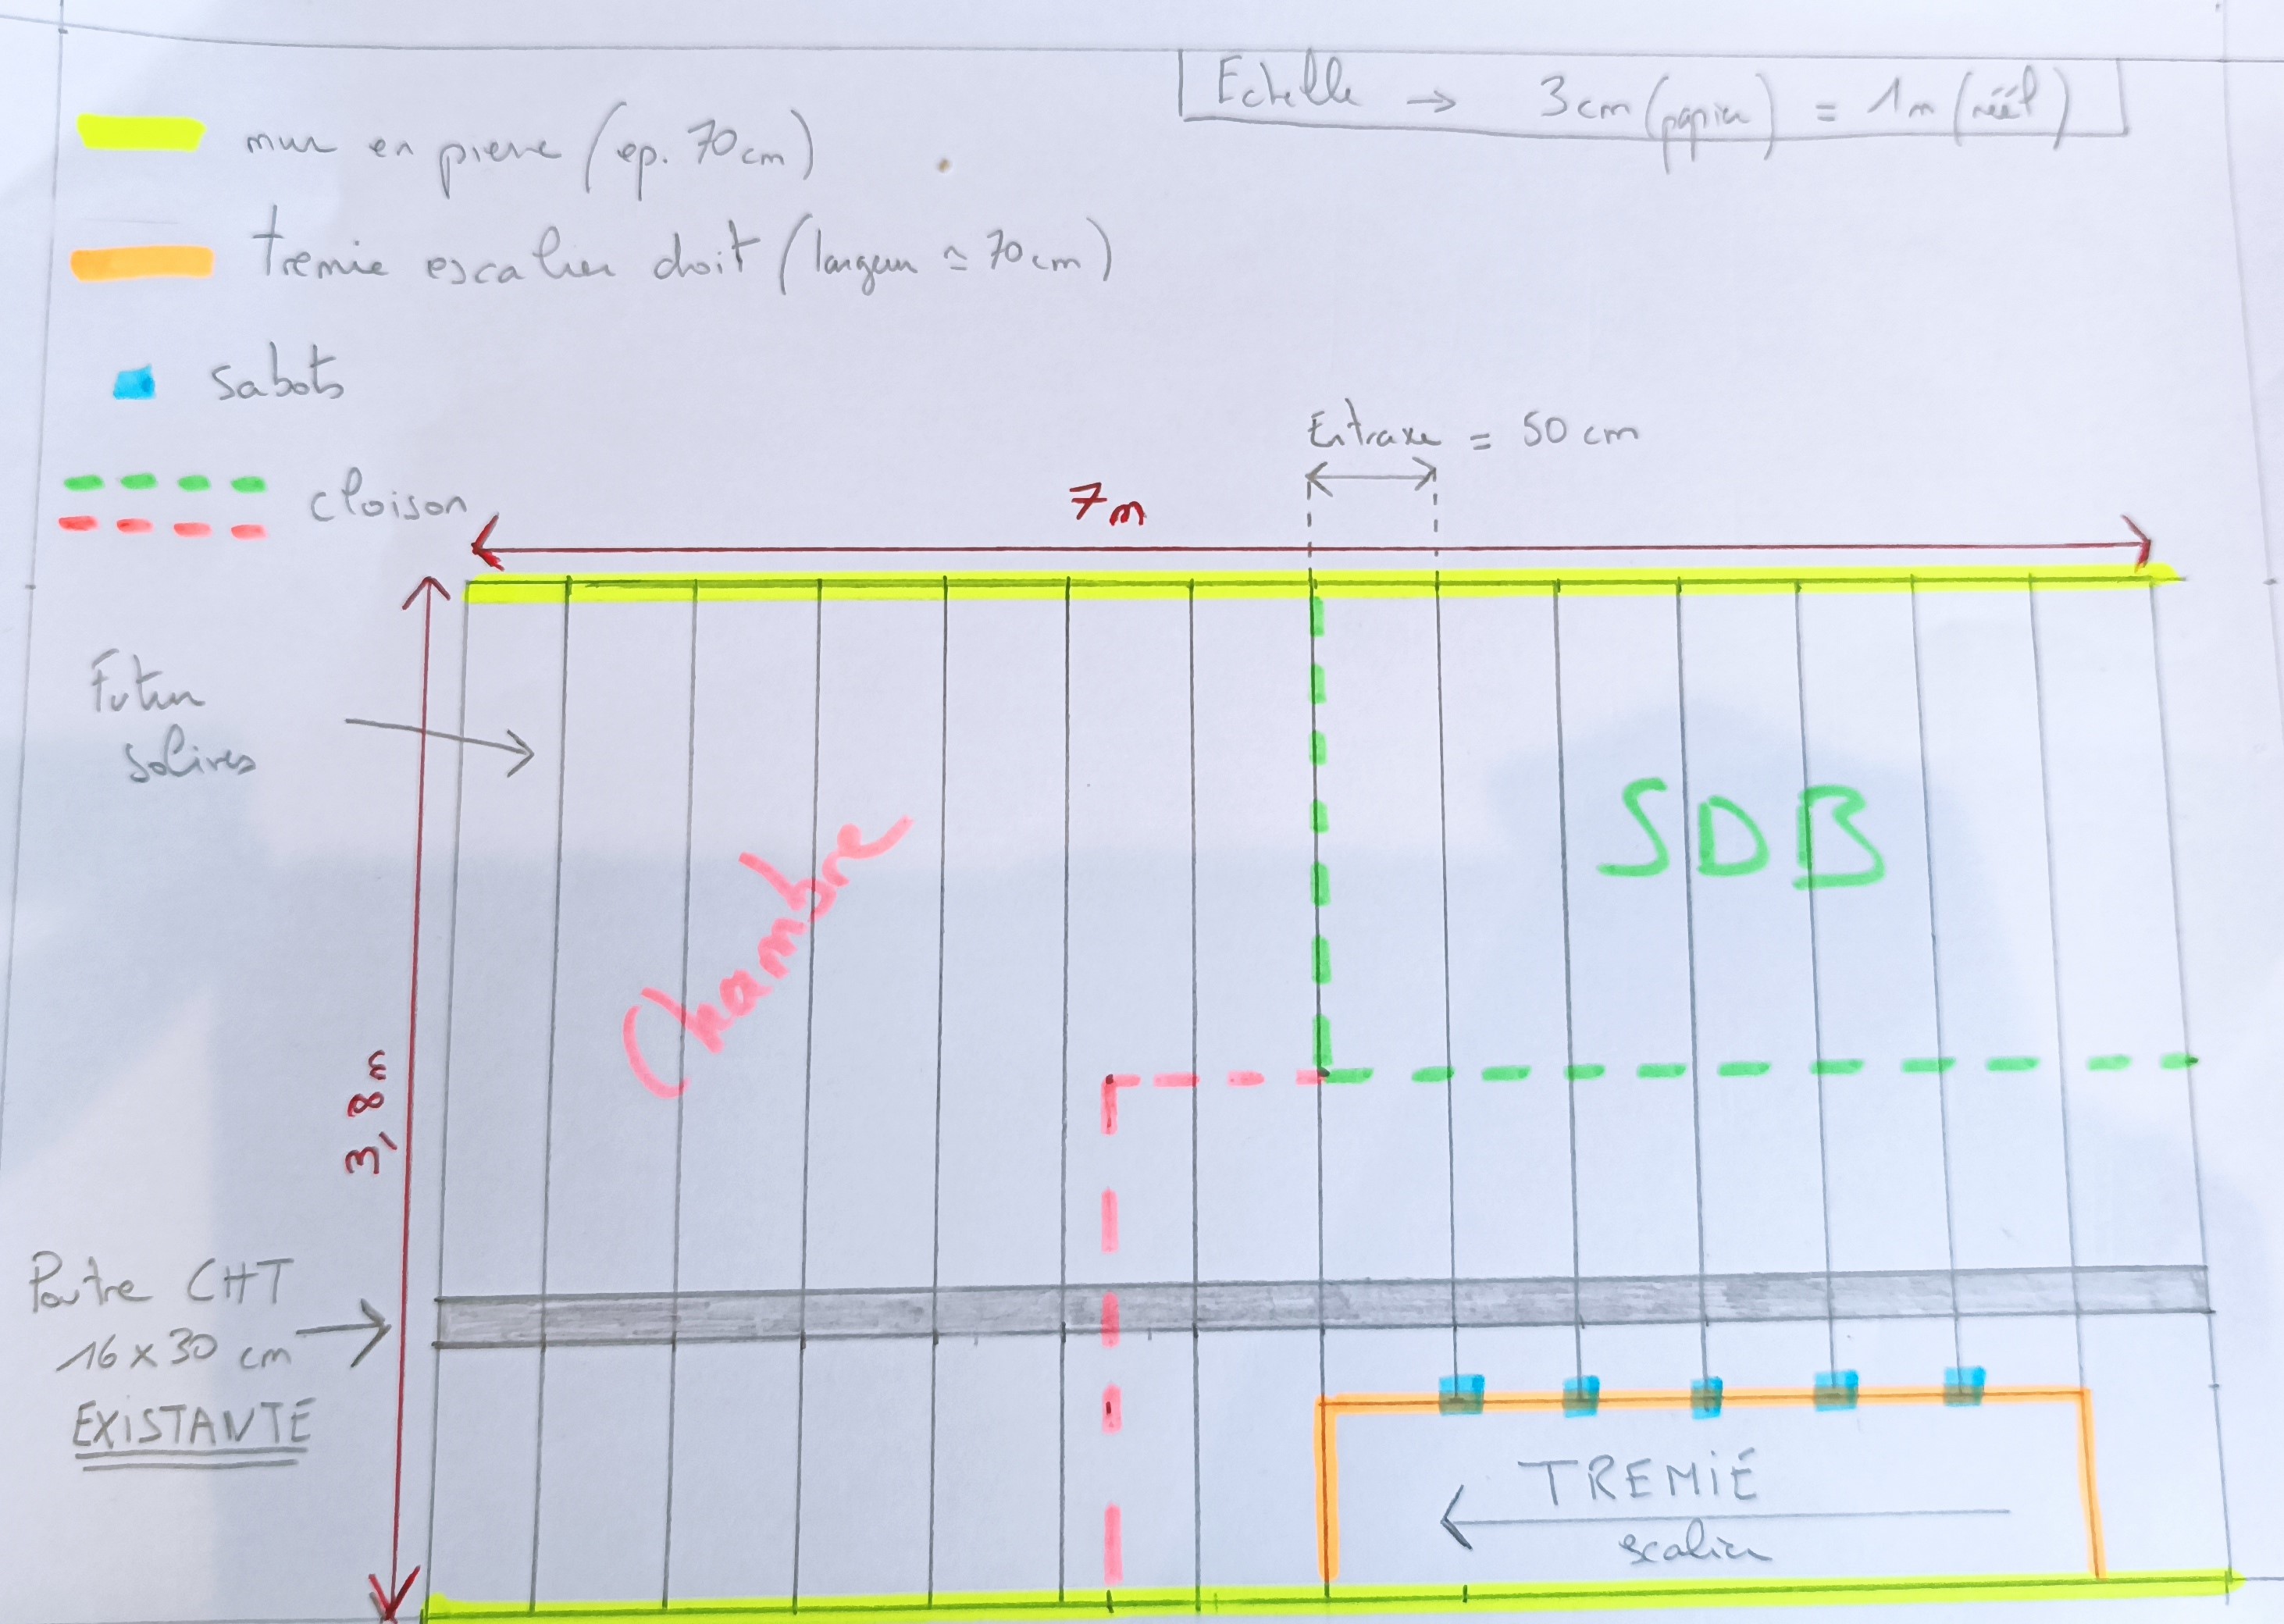 Echelle → 3cm (papier) = 1m (réél)
mur en pierre (ep. 70cm)
tremie escalier droit (largeur ≃ 70cm)
sabots
cloison
Entraxe = 50 cm
7m
Futur
solives
SDB
Chambre
3,8m
Poutre CHT
16x30 cm
EXISTANTE
TREMIE
escalier